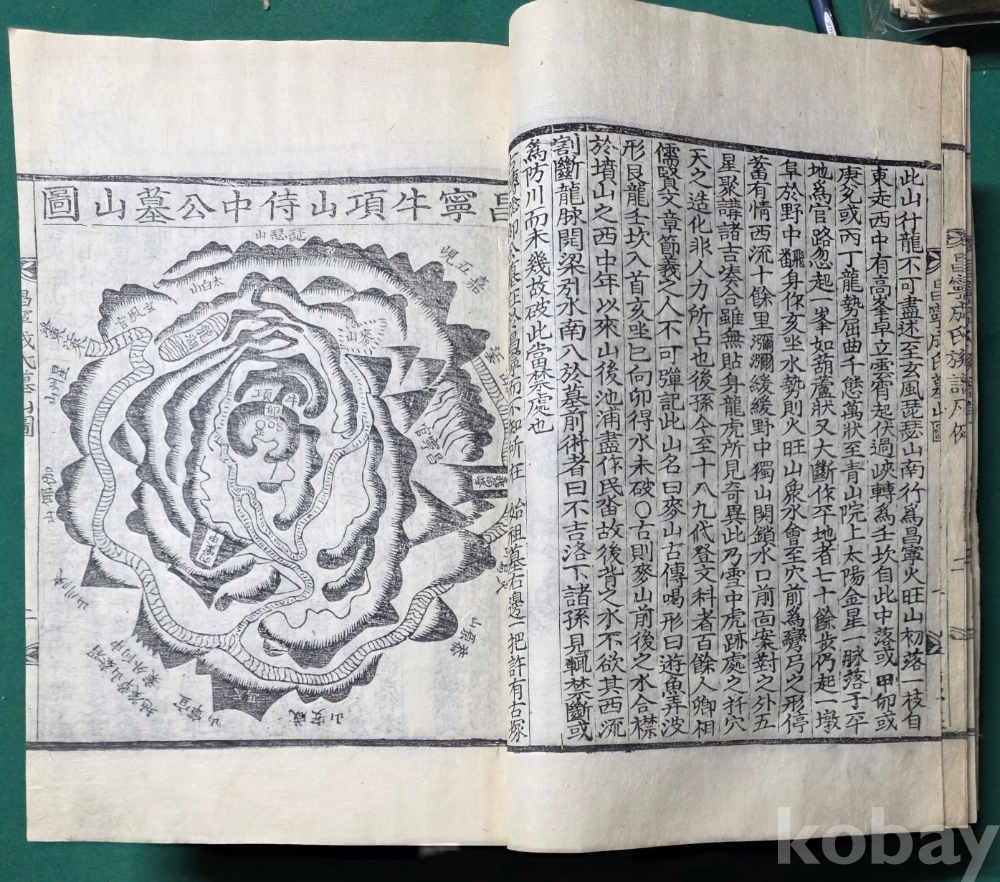 昌寧成氏族譜凡例
昌寧成氏墓山圖
此山行龍不可盡述至玄風琵瑟山南行爲昌寧火旺山初落一枝自
東走西中有高峯卓立雲霄起伏過峽轉爲壬坎自此中落或甲卯或
庚兌或丙丁龍勢屈曲千態萬狀至青山院上太陽金星一脉落于平
地爲官路忽起一峯如葫蘆狀又大斷作平地者七十餘步仍起一墩
阜於野中飜身作亥坐水勢則火旺山泉水會至穴前爲彎弓之形停
蓄有情西流十餘里瀰瀰緩緩野中獨山関鎖水口前面案對之外五
星聚講諸吉湊合雖無貼身龍虎所見奇異此乃雪中虎跡處之扦穴
天之造化非人力所占也後孫今至十八九代登文科者百餘人卿相
儒賢文章節義之人不可殫記此山名曰麥山古傳喝形曰遊魚弄波
形艮龍壬坎入首亥坐巳向卯得水未破○古則麥山前後之水合襟
於墳山之西中年以來山後池浦盡作民畓故後背之水不欲其西流
割斷龍脉開梁引水南入於墓前術者曰不吉落下諸孫見輒禁斷或
爲防川而未幾故破此當禁處也
而不知所在 始祖墓右邊一把許有古塚
昌寧牛項山侍中公墓山圖
琵瑟山
太白山
玄風官
嘉五峴
星州山
伽倻山
昌寧官
牛項
靈山
咸安山
宜寧山
昌寧成氏墓山圖
kobay